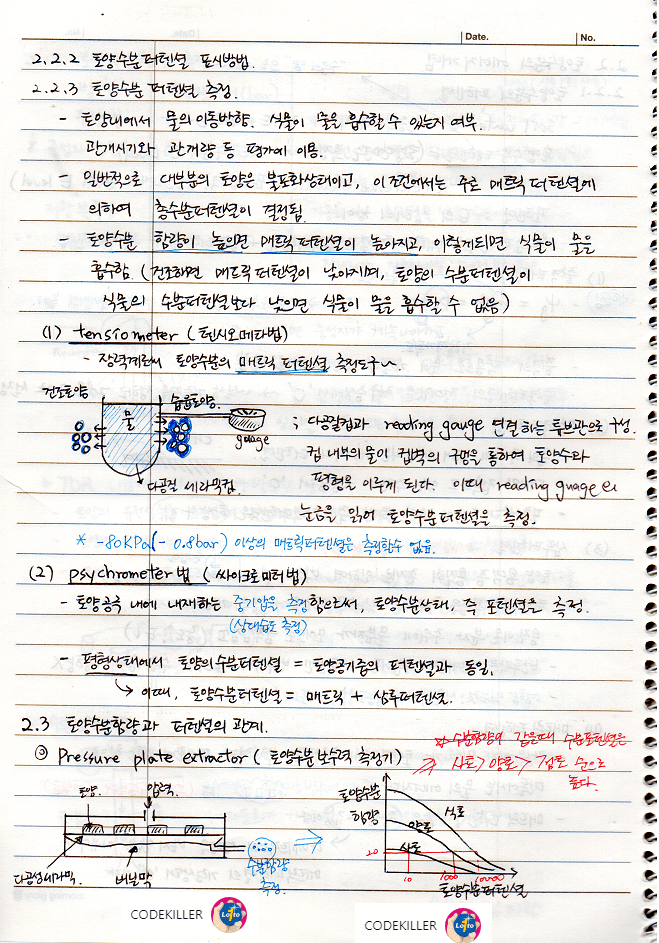 Date.
No.
2.2.2 토양수분퍼텐셜 표시방법.
2.2.3 토양수분 퍼텐셜 측정.
- 토양내에서 물의 이동방향. 식물이 물을 흡수할 수 있는지 여부.
관개시기와 관개량 등 평가에 이용.
- 일반적으로 대부분의 토양은 불포화상태이고, 이 조건에서는 주로 매트릭 퍼텐셜에
의하여 총수분퍼텐셜이 결정됨.
- 토양수분 함량이 높으면 매트릭 퍼텐셜이 높아지고, 이렇게되면 식물이 물을
흡수함. (건조하면 매트릭 퍼텐셜이 낮아지며, 토양의 수분퍼텐셜이
식물의 수분퍼텐셜보다 낮으면 식물이 물을 흡수할 수 없음)
(1) tensiometer (텐시오메타법)
- 장력계로써 토양수분의 매트릭 퍼텐셜 측정도구~.
건조토양
물
습윤토양.
gauge
다공질 세라믹컵
; 다공질컵과 reading gauge 연결하는 튜브관으로 구성.
컵 내부의 물이 컵벽의 구멍을 통하여 토양수와
평형을 이루게 된다. 이때 reading guage의
눈금을 읽어 토양수분퍼텐셜을 측정.
* -80KPa(-0.8bar) 이상의 매트릭퍼텐셜은 측정할수 없음.
(2) psychrometer법 (싸이크로미터법)
- 토양공극 내에 내재하는 증기압을 측정함으로써, 토양수분상태, 즉 포텐셜을 측정.
(상대습도 측정)
- 평형상태에서 토양의 수분퍼텐셜 = 토양공기중의 퍼텐셜과 동일.
↳ 이때, 토양수분퍼텐셜 = 매트릭 + 삼투퍼텐셜.
2.3 토양수분함량과 퍼텐셜의 관계.
Pressure plate extractor (토양수분 보수력 측정기)
수분함량이 같을때 수분포텐셜은
사토 > 양토 > 점토 순으로
높다.
토양.
압력.
다공성세라믹.
비닐막
수분함량
측정.
토양수분
함량
식토
양토
사토
20
10
1000
10000
토양수분퍼텐셜
CODEKILLER
Lotto
CODEKILLER
Lotto